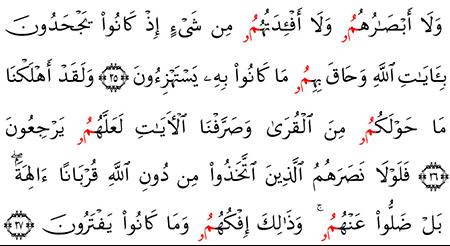 وَلَا أَبْصَٰرُهُمُۥ وَلَا أَفْـِٔدَتُهُمُۥ مِن شَىْءٍ إِذْ كَانُوا۟ تَجْحَدُونَ
بِـَٔايَٰتِ ٱللَّهِ وَحَاقَ بِهِمُۥ مَا كَانُوا۟ بِهِۦ يَسْتَهْزِءُونَ ۝٢٥ وَلَقَدْ أَهْلَكْنَا
مَا حَوْلَكُمُۥ مِنَ ٱلْقُرَىٰ وَصَرَّفْنَا ٱلْأَيَٰتِ لَعَلَّهُمُۥ يَرْجِعُونَ
۝٢٦ فَلَوْلَا نَصَرَهُمُ ٱلَّذِينَ ٱتَّخَذُوا۟ مِن دُونِ ٱللَّهِ قُرْبَانًا ءَالِهَةَۢ ۖ
بَلْ ضَلُّوا۟ عَنْهُمُۥ ۚ وَذَٰلِكَ إِفْكُهُمُۥ وَمَا كَانُوا۟ يَفْتَرُونَ ۝٢٧